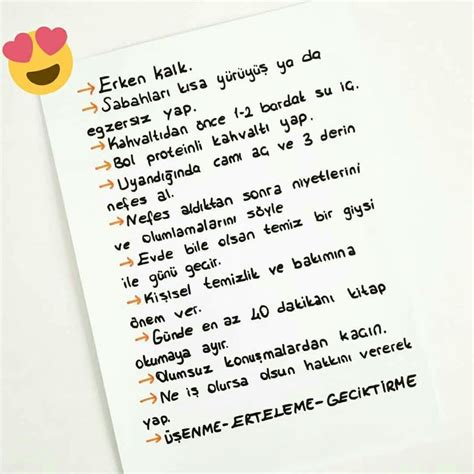 →Erken kalk.
→Sabahları kısa yürüyüş ya da
egzersiz yap.
→Kahvaltıdan önce 1-2 bardak su iç.
→Bol proteinli kahvaltı yap.
→Uyandığında camı aç ve 3 derin
nefes al.
→Nefes aldıktan sonra niyetlerini
ve olumlamalarını söyle
→Evde bile olsan temiz bir giysi
ile günü geçir.
→Kişisel temizlik ve bakımına
önem ver.
→Günde en az 40 dakikanı kitap
okumaya ayır.
→Olumsuz konuşmalardan kaçın.
→Ne iş olursa olsun hakkını vererek
yap.
→ÜŞENME-ERTELEME-GECİKTİRME